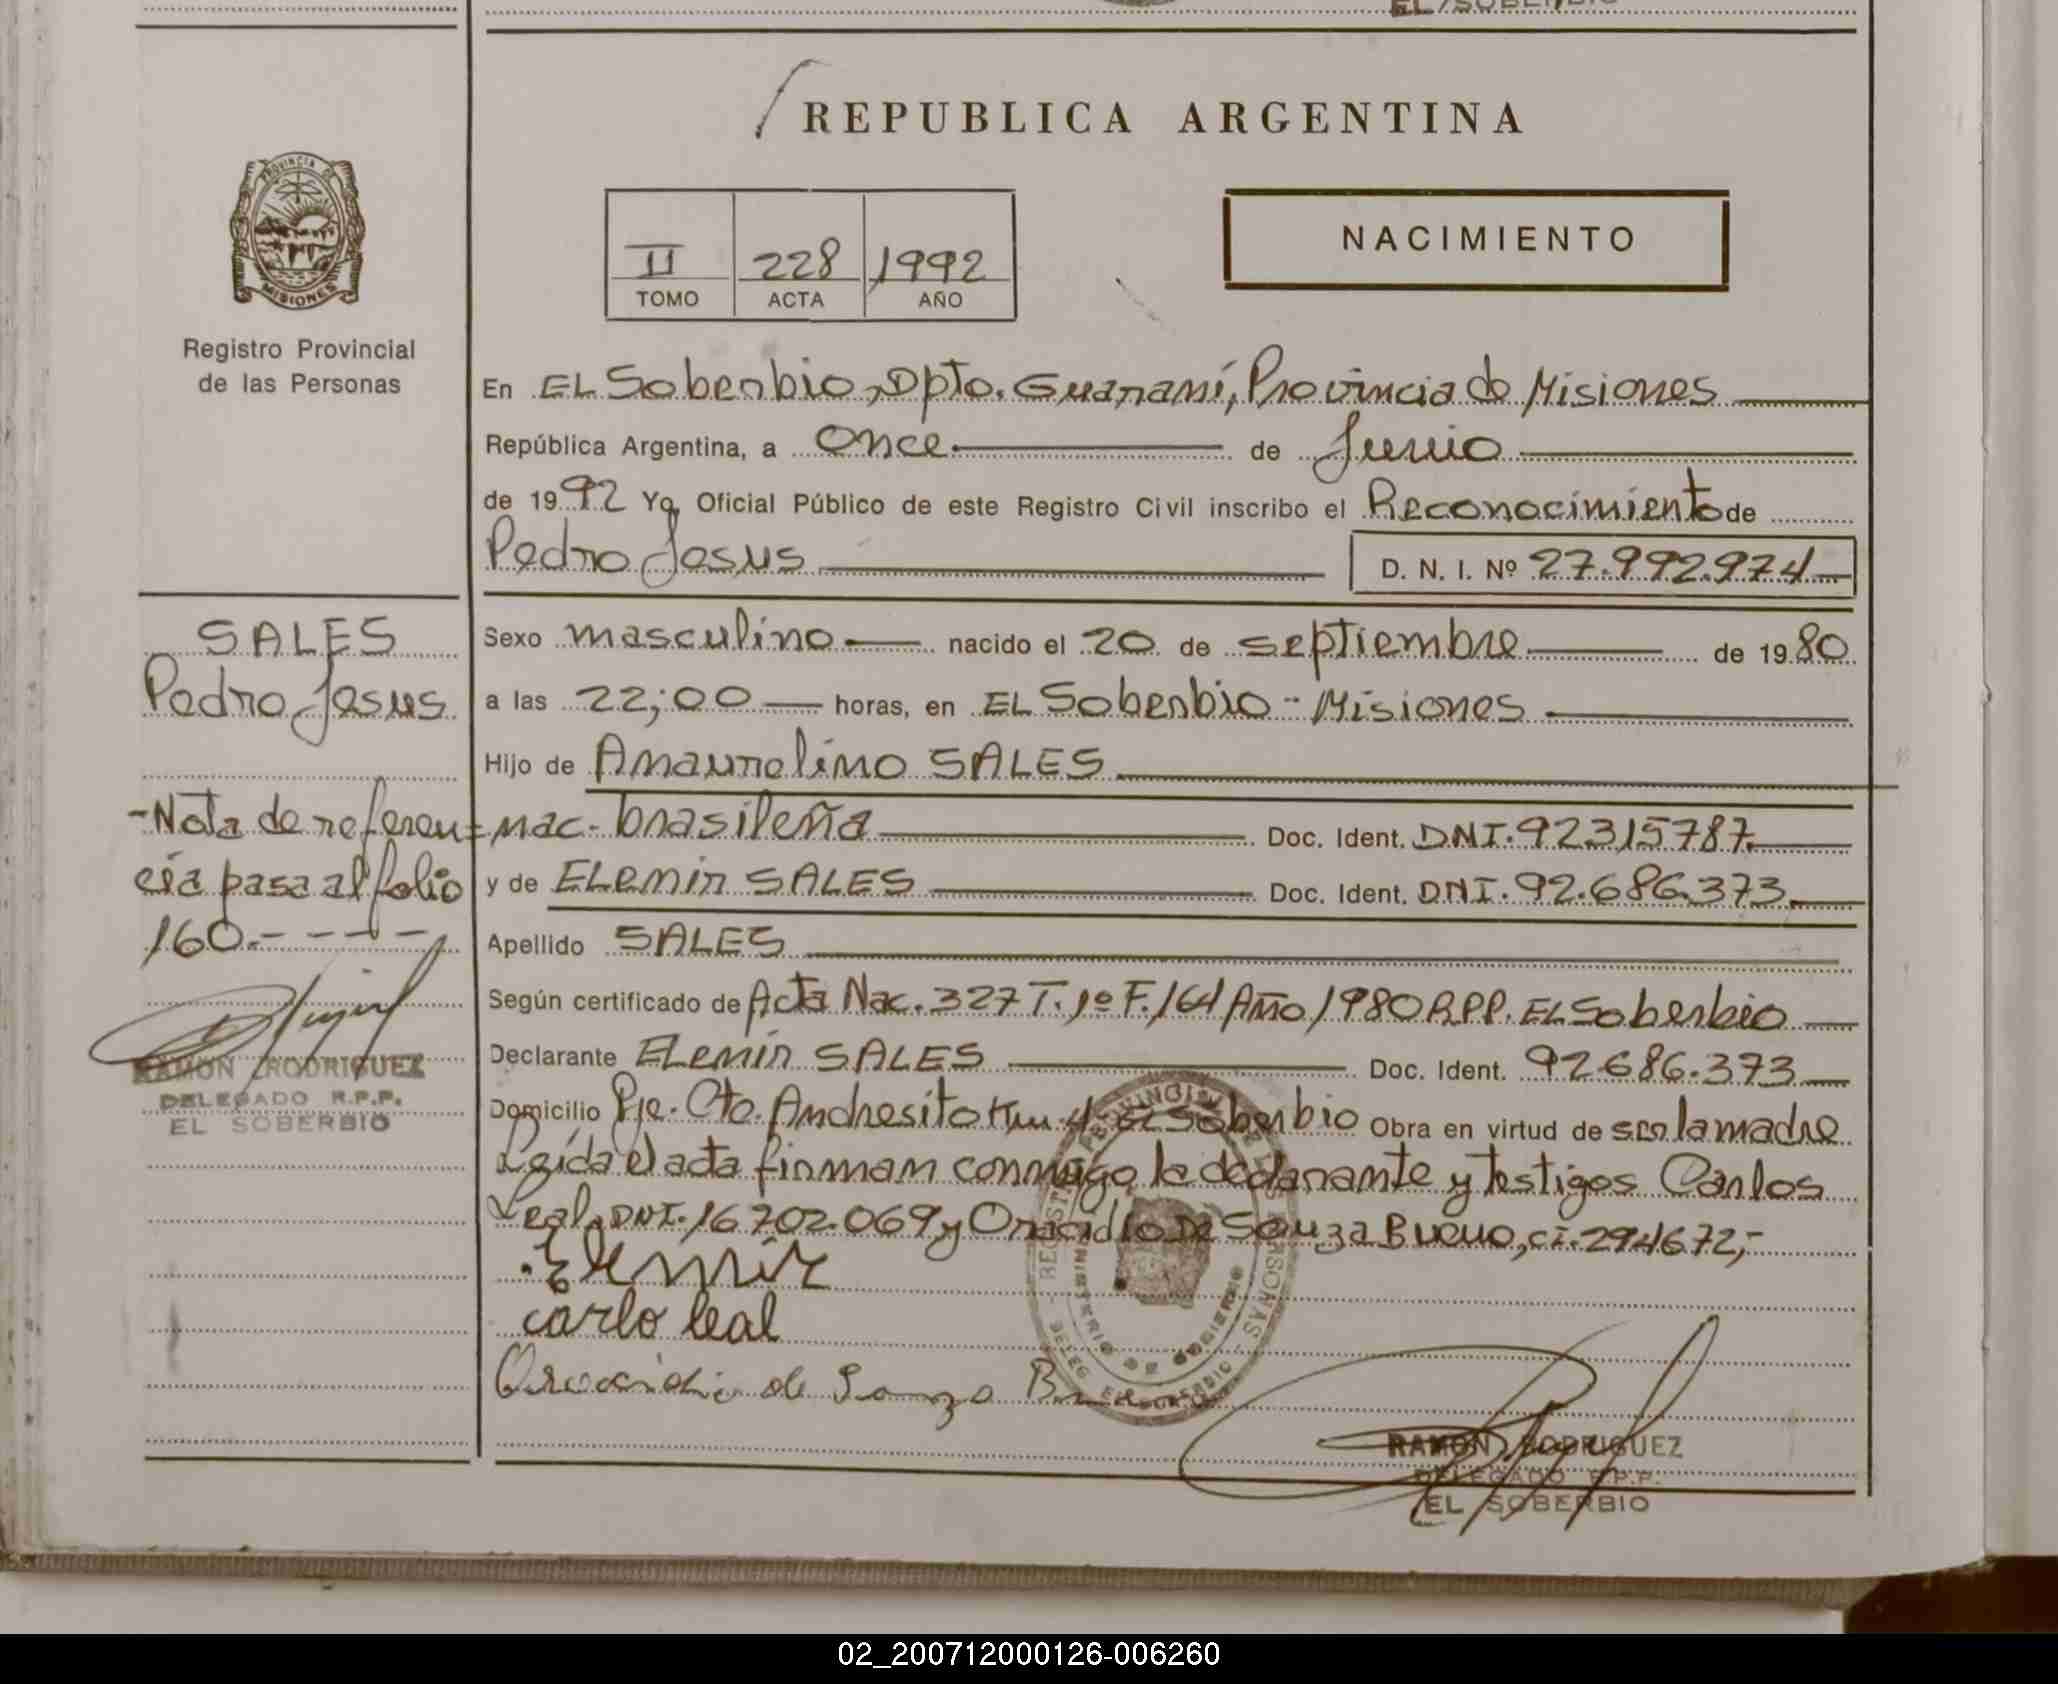 EL SOBERBIO
REPUBLICA ARGENTINA
PROVINCIA DE
MISIONES
Registro Provincial
de las Personas
II 228 1992
TOMO ACTA AÑO
NACIMIENTO
En EL Soberbio, Dpto. Guaraní, Provincia de Misiones
República Argentina, a once de Junio
de 1992 Yo, Oficial Público de este Registro Civil inscribo el Reconocimiento de
Pedro Jesus D. N. I. Nº 27.992.974
SALES
Pedro Jesus
Sexo masculino nacido el 20 de septiembre de 1980
a las 22;00 horas, en EL Soberbio - Misiones
Hijo de Amaurelino SALES
nac. brasileña Doc. Ident. DNI. 92315787.
y de ELemir SALES Doc. Ident. DNI. 92.686.373.
-Nota de referen=
cia pasa al folio
160.- - - - -
Apellido SALES
Según certificado de Acta Nac. 327 T. 1º F. 164 Año 1980 RPP. EL Soberbio
Declarante ELemir SALES Doc. Ident. 92686.373
Domicilio Pje. Cto. Andresito Km 4 El Soberbio Obra en virtud de ser la madre
Leída el acta firman conmigo la declarante y testigos Carlos
Leal, DNI. 16.702.069 y Oracidio De Souza Bueno, CI. 294672,-
Elemir
carlo leal
Oracidio de Souza
RAMON RODRIGUEZ
DELEGADO R.P.P.
EL SOBERBIO
REGISTRO PROVINCIAL DE LAS PERSONAS
MINISTERIO DE GOBIERNO
DELEG. EL SOBERBIO
RAMON RODRIGUEZ
DELEGADO R.P.P.
EL SOBERBIO
02_200712000126-006260